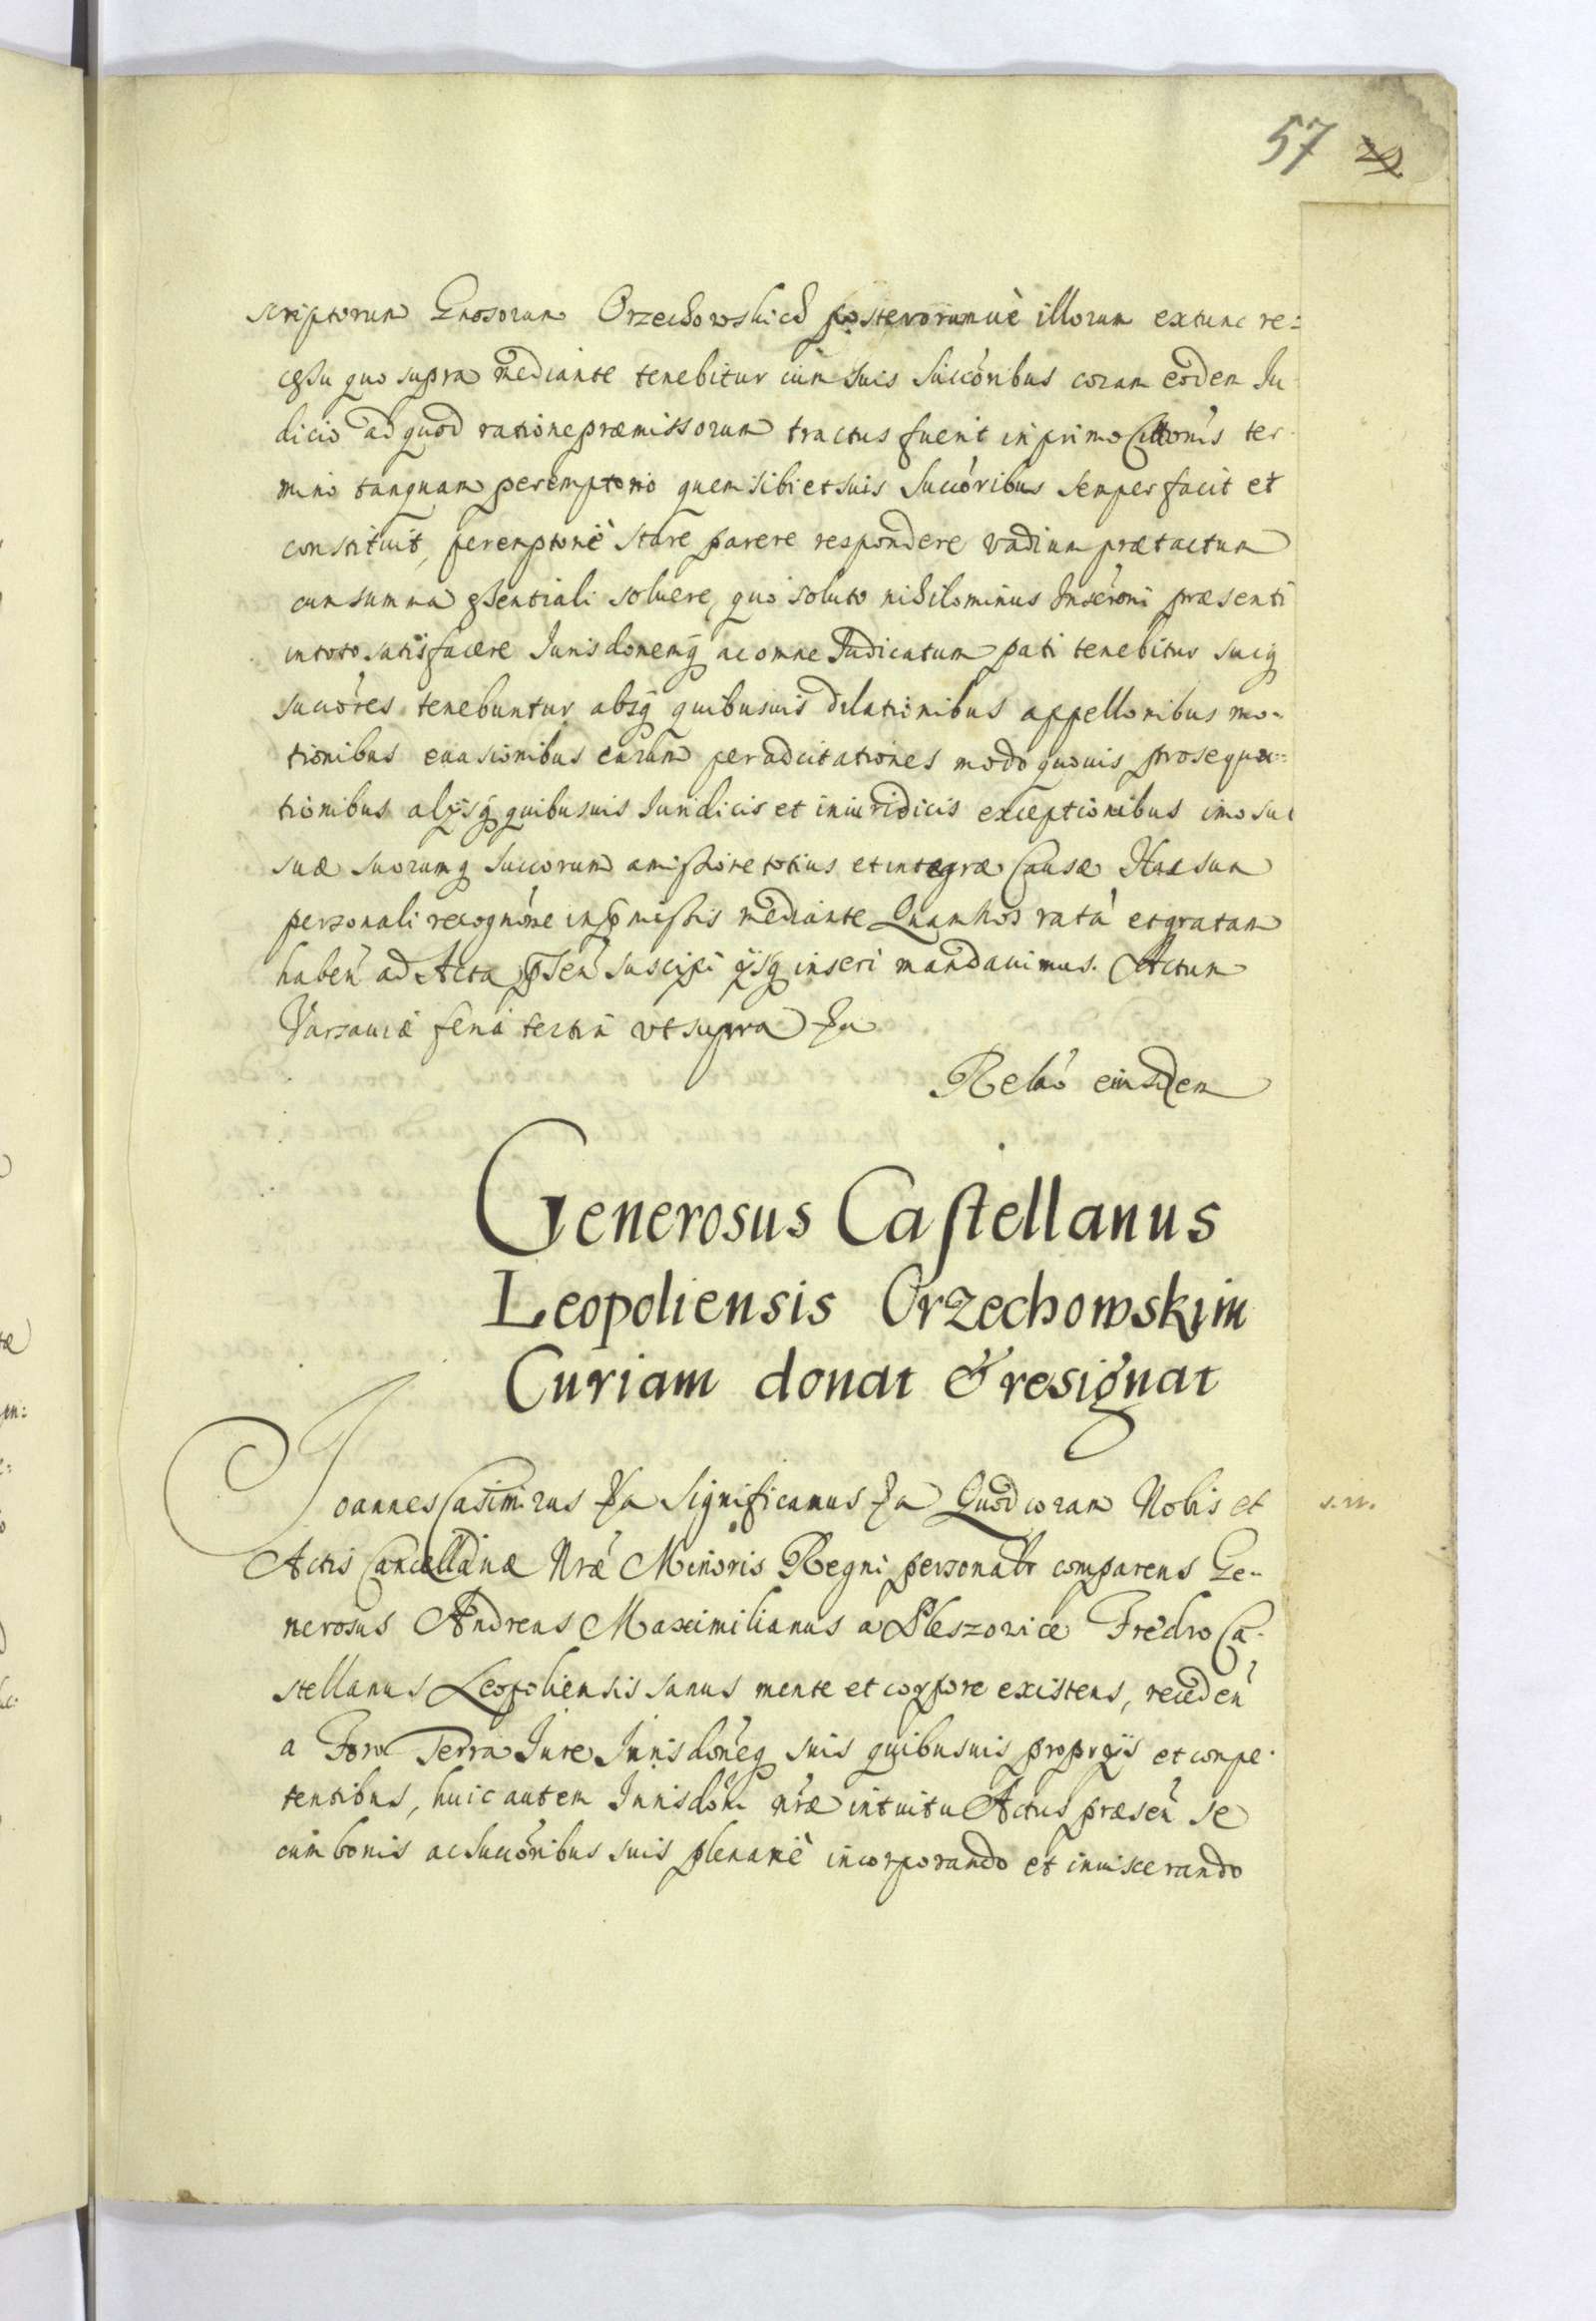 57 29
scriptorum Gnosorum Orzechowskich posterorumuè illorum extunc re=
cessu quo supra mediante tenebitur cum suis Succoribus coram eodem Iu
dicio ad quod ratione præmissorum tractus fuerit in primo Cittonis ter-
mino tanquam peremptorio quem sibi et suis Succoribus semper facit et
constituit, peremptoriè stare parere respondere vadium prætactum
cum summa essentiali soluere, quo soluto nihilominus Inscroni præsenti
in toto satisfacere Iurisdonemq ac omne Iudicatum pati tenebitur suiq
succores tenebuntur absq quibusuis dilationibus appellonibus mo-
tionibus euasionibus earum peradcitationes modo quouis prosequu=
tionibus alijsq quibusuis Iuridicis et iniuridicis exceptionibus imo sui
suæ suorumq succorum amissione totius et integræ Causæ Hac sua
personali recognone inspmissis mediante Quam nos ratã et gratam
haben ad Acta psen suscipi ijsq inseri mandauimus. Actum
Varsauiæ feria tertia vt supra
Relaõ eiusdem
Generosus Castellanus
Leopoliensis Orzechowskim
Curiam donat & resignat
Ioannes Casimirus Significamus Quod coram Nobis et
s. n.
Actis Cancellariæ Nræ Minoris Regni personalr comparens Ge-
nerosus Andreas Maximilianus a Pleszowice Fredro Ca-
stellanus Leopoliensis sanus mente et corpore existens, receden
a Foro Terra Iure Iurisdoneq suis quibusuis proprijs et compe-
tentibus, huic autem Iurisdoni nræ intuitu Actus præsen se
cum bonis ac Succoribus suis plenariè incorporando et inuiscerando